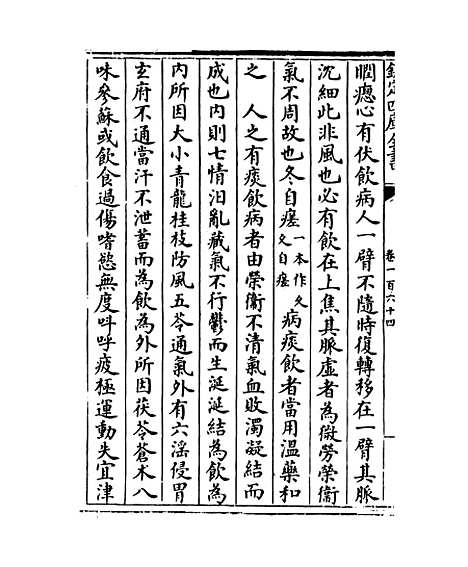 欽定四庫全書
卷一百六十四
瞤癋心有伏飲病人一臂不隨時復轉移在一臂其脈
沉細此非風也必有飲在上焦其脈虛者為微勞榮衛
氣不周故也冬自瘥一本作久久自瘥病痰飲者當用溫藥和
之 人之有痰飲病者由榮衛不清氣血敗濁凝結而
成也内則七情汨亂藏氣不行鬱而生涎涎結為飲為
内所因大小青龍桂枝防風五苓通氣外有六淫侵冒
玄府不通當汗不泄蓄而為飲為外所因茯苓蒼术八
味參蘇或飲食過傷嗜慾無度呌呼疲極運動失宜津